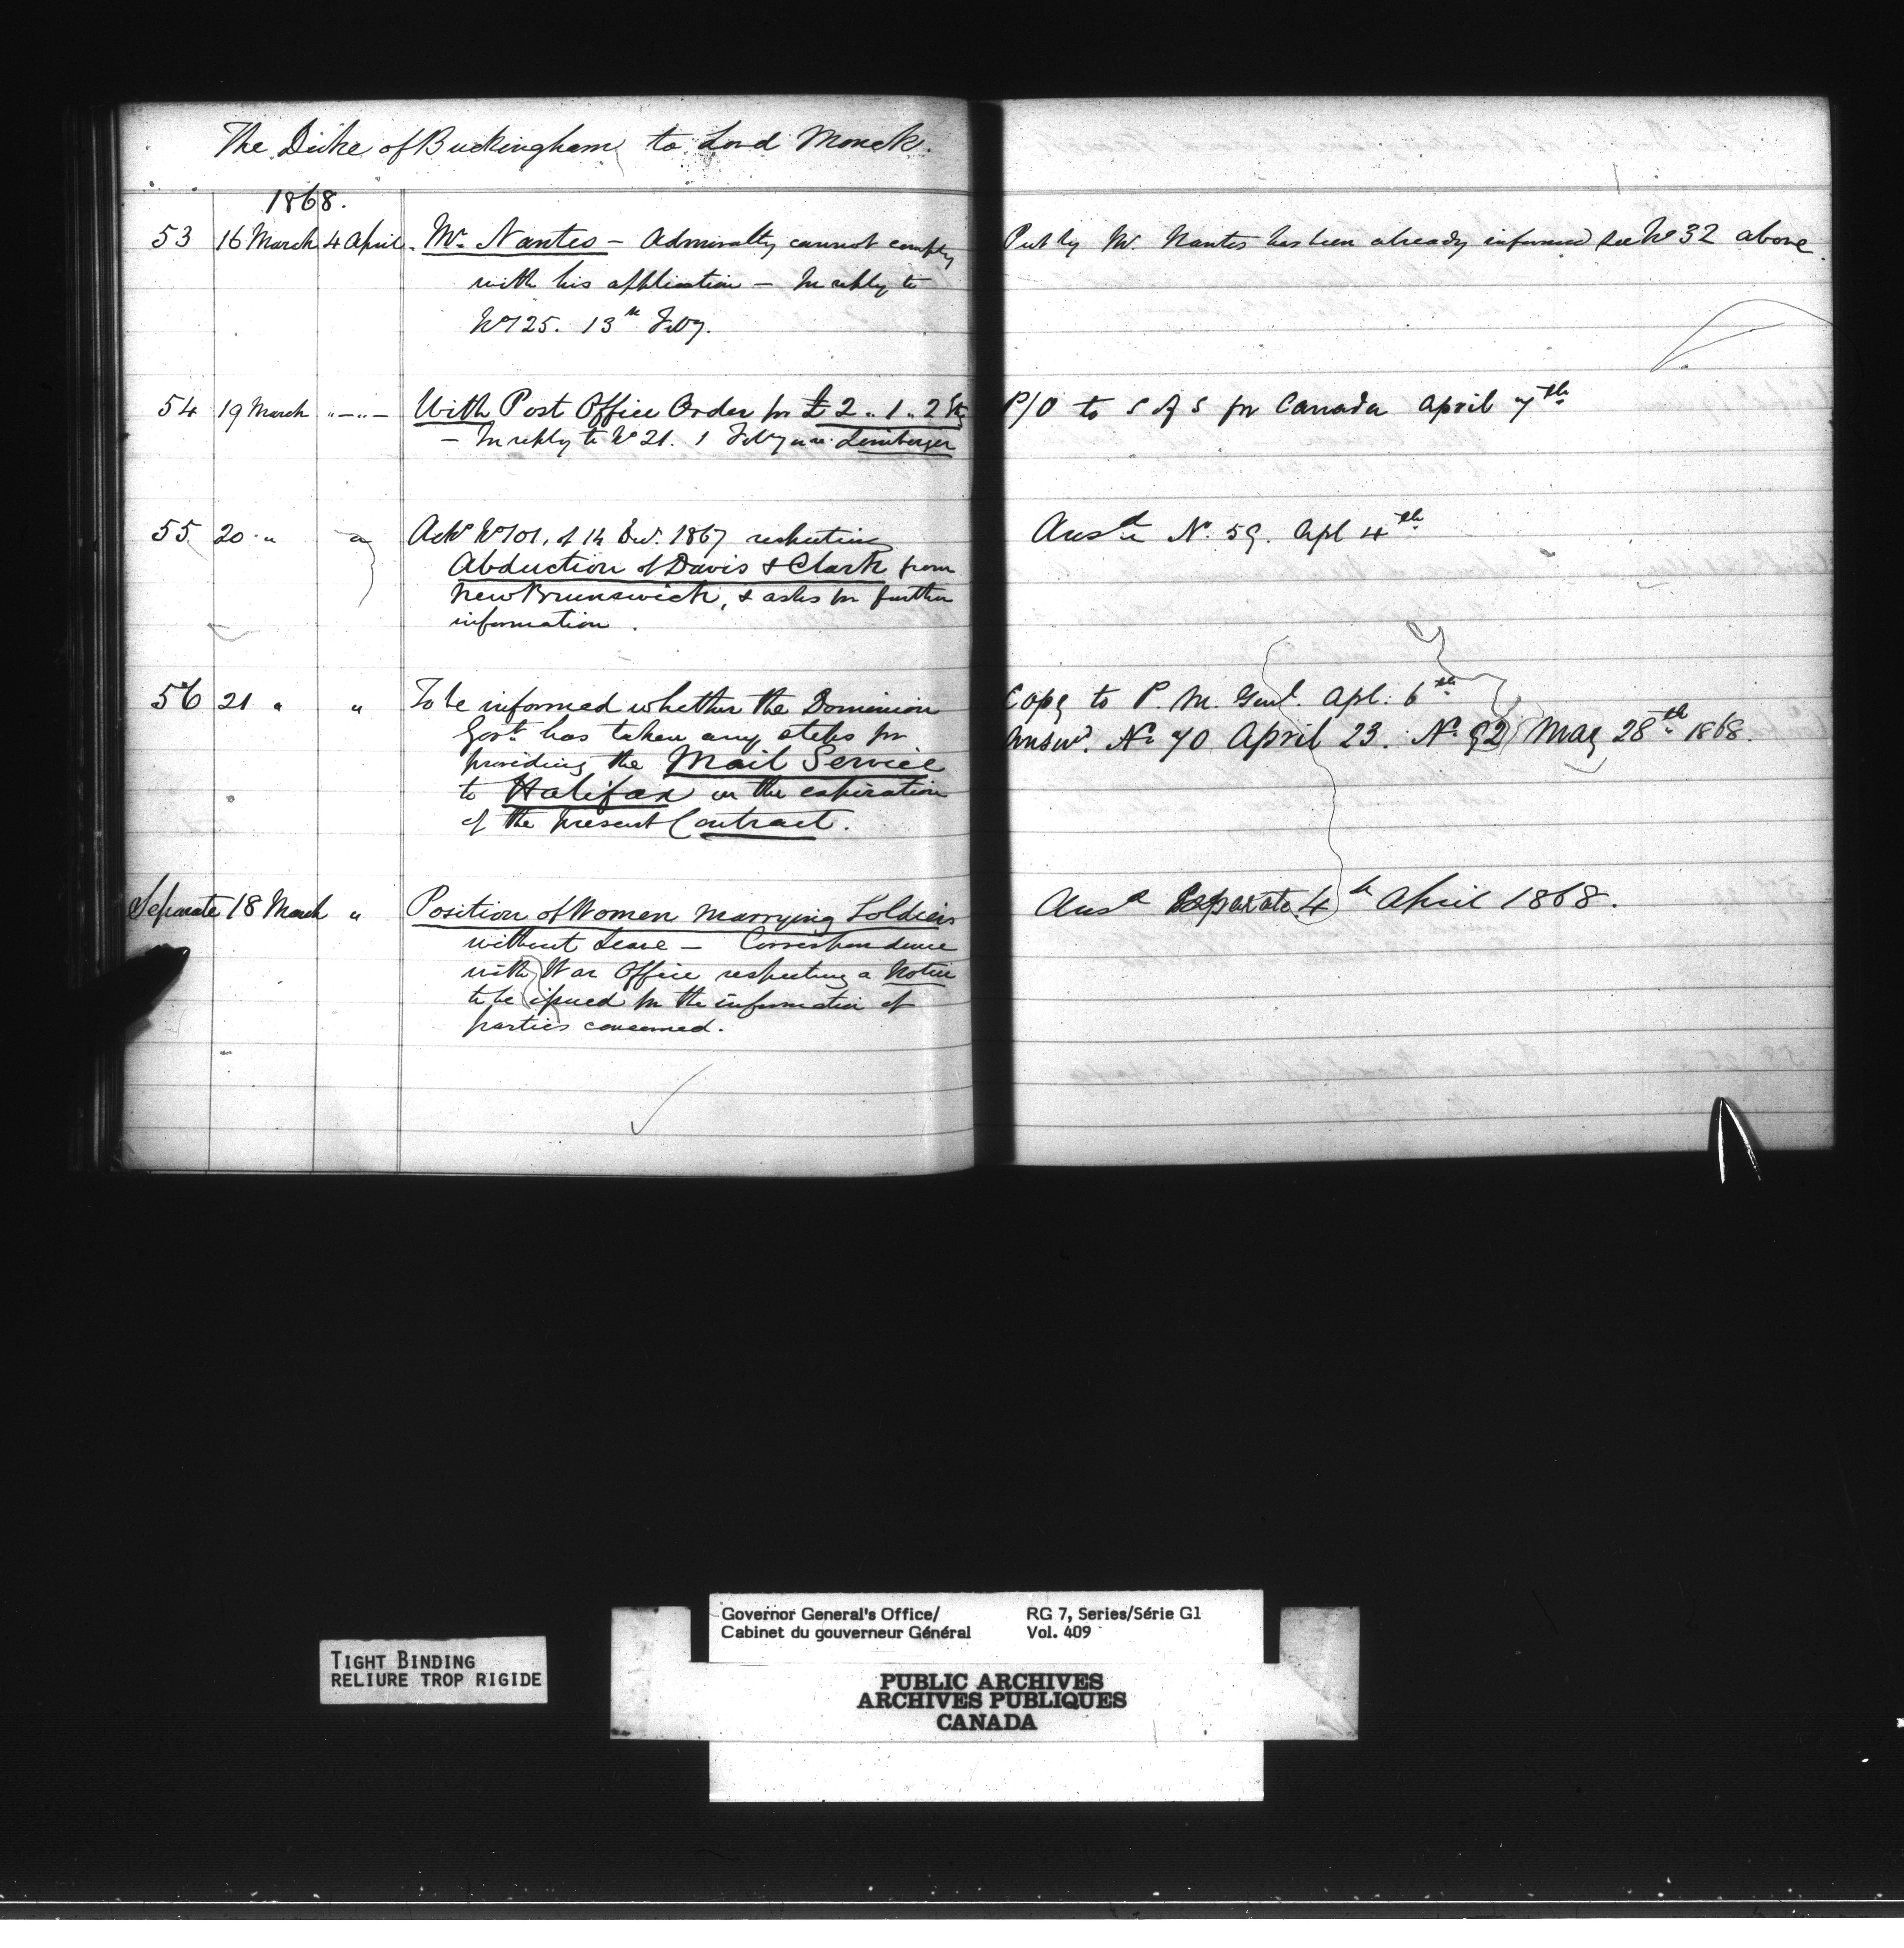 The Duke of Buckingham to Lord Monck.
1868.
53 16 March 4 April. Mr. Nantes – Admiralty cannot comply
with his application – In reply to
No 25. 13th Feby.
Put by Mr. Nantes has been already informed see No 32 above.
54 19 March "–"– With Post Office Order for £2..1..2 Stg
– In reply to No 21. 1 Feby in re. Limberger
P/O to S of S for Canada April 7th
55 20 " " Ackg No 101, of 14 Dec. 1867 respecting
Abduction of Davis & Clark from
New Brunswick, & asks for further
information.
Ansd No. 59. Apl 4th
56 21 " " To be informed whether the Dominion
Govt. has taken any steps for
providing the Mail Service
to Halifax on the expiration
of the present Contract.
Copy to P. M. Genl. Apl. 6th
Answd. No 70 April 23. No 92 May 28th 1868.
Separate 18 March " Position of Women marrying Soldiers
without Leave – Correspondence
with War Office respecting a Notice
to be issued for the information of
parties concerned.
Ansd Separate 4th April 1868.
Governor General's Office/ RG 7, Series/Série G1
Cabinet du gouverneur Général Vol. 409
TIGHT BINDING
RELIURE TROP RIGIDE
PUBLIC ARCHIVES
ARCHIVES PUBLIQUES
CANADA